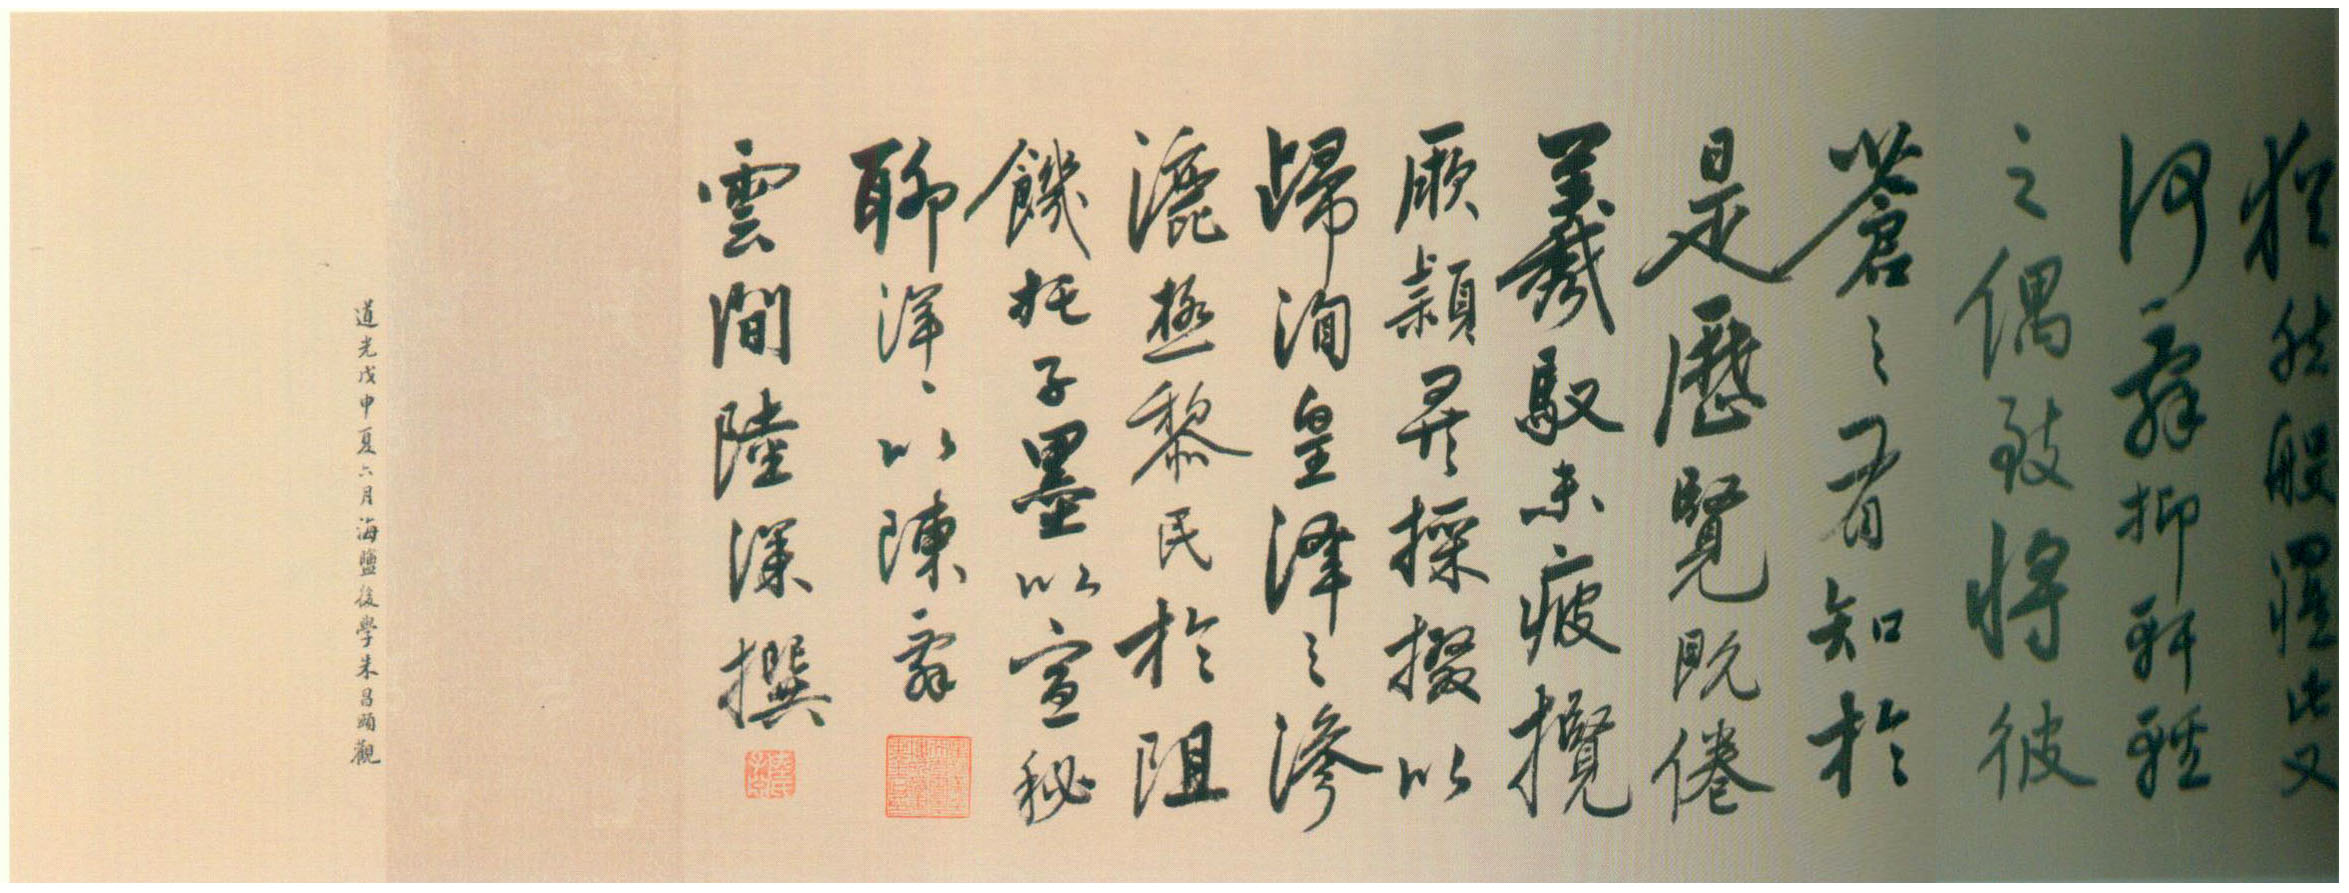 犹然般濯此又
何霧抑軒輊
之偶致將彼
蒼之有知於
是歷覽既倦
羲馭未疲攬
厥穎异採掇以
歸洵皇澤之滲
漉拯黎民於阻
饑托子墨以宣秘
聊洋洋以陳辭
雲間陸深撰
道光戊申夏六月海鹽後學朱昌頤觀